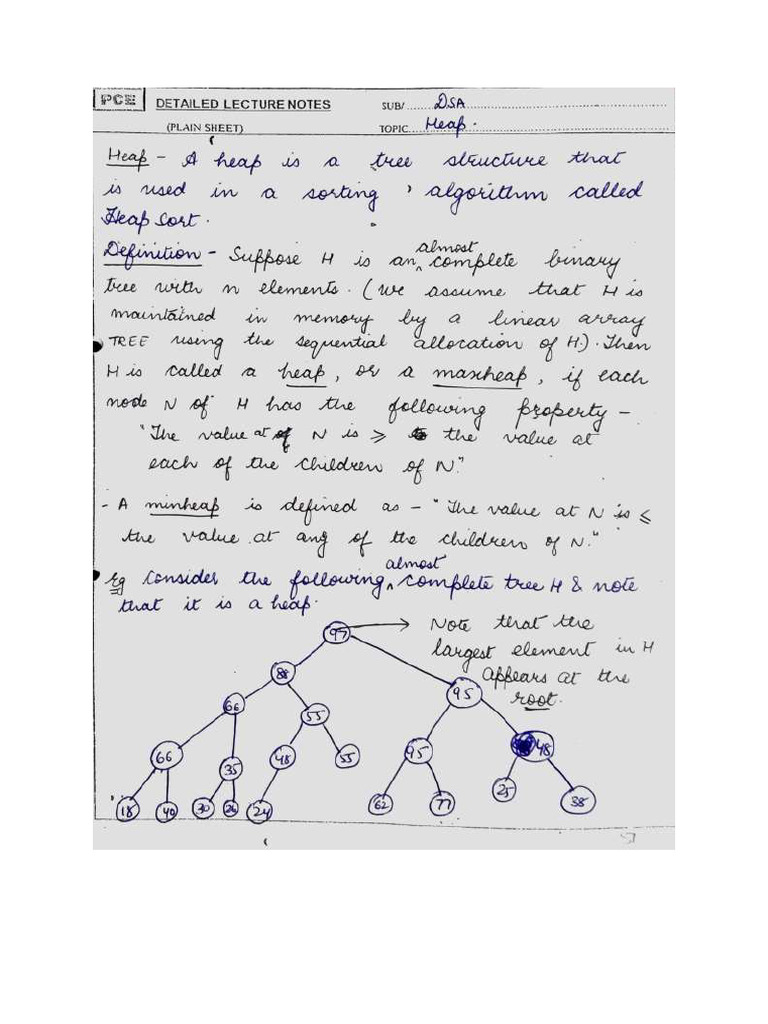 PCE DETAILED LECTURE NOTES SUB/ DSA
(PLAIN SHEET) TOPIC Heap.
Heap - A heap is a tree structure that
is used in a sorting algorithm called
Heap Sort.
Definition - Suppose H is an almost complete binary
tree with n elements. (We assume that H is
maintained in memory by a linear array
TREE using the sequential allocation of H.) Then
H is called a heap, or a maxheap, if each
node N of H has the following property -
"The value at N is ≥ the value at
each of the children of N."
- A minheap is defined as - "The value at N is ≤
the value at any of the children of N."
Eg Consider the following almost complete tree H & note
that it is a heap.
97 → Note that the
largest element in H
appears at the
root.
88 95
66 55
66 35 48 55 95 48
18 40 30 26 24 62 77 25 38